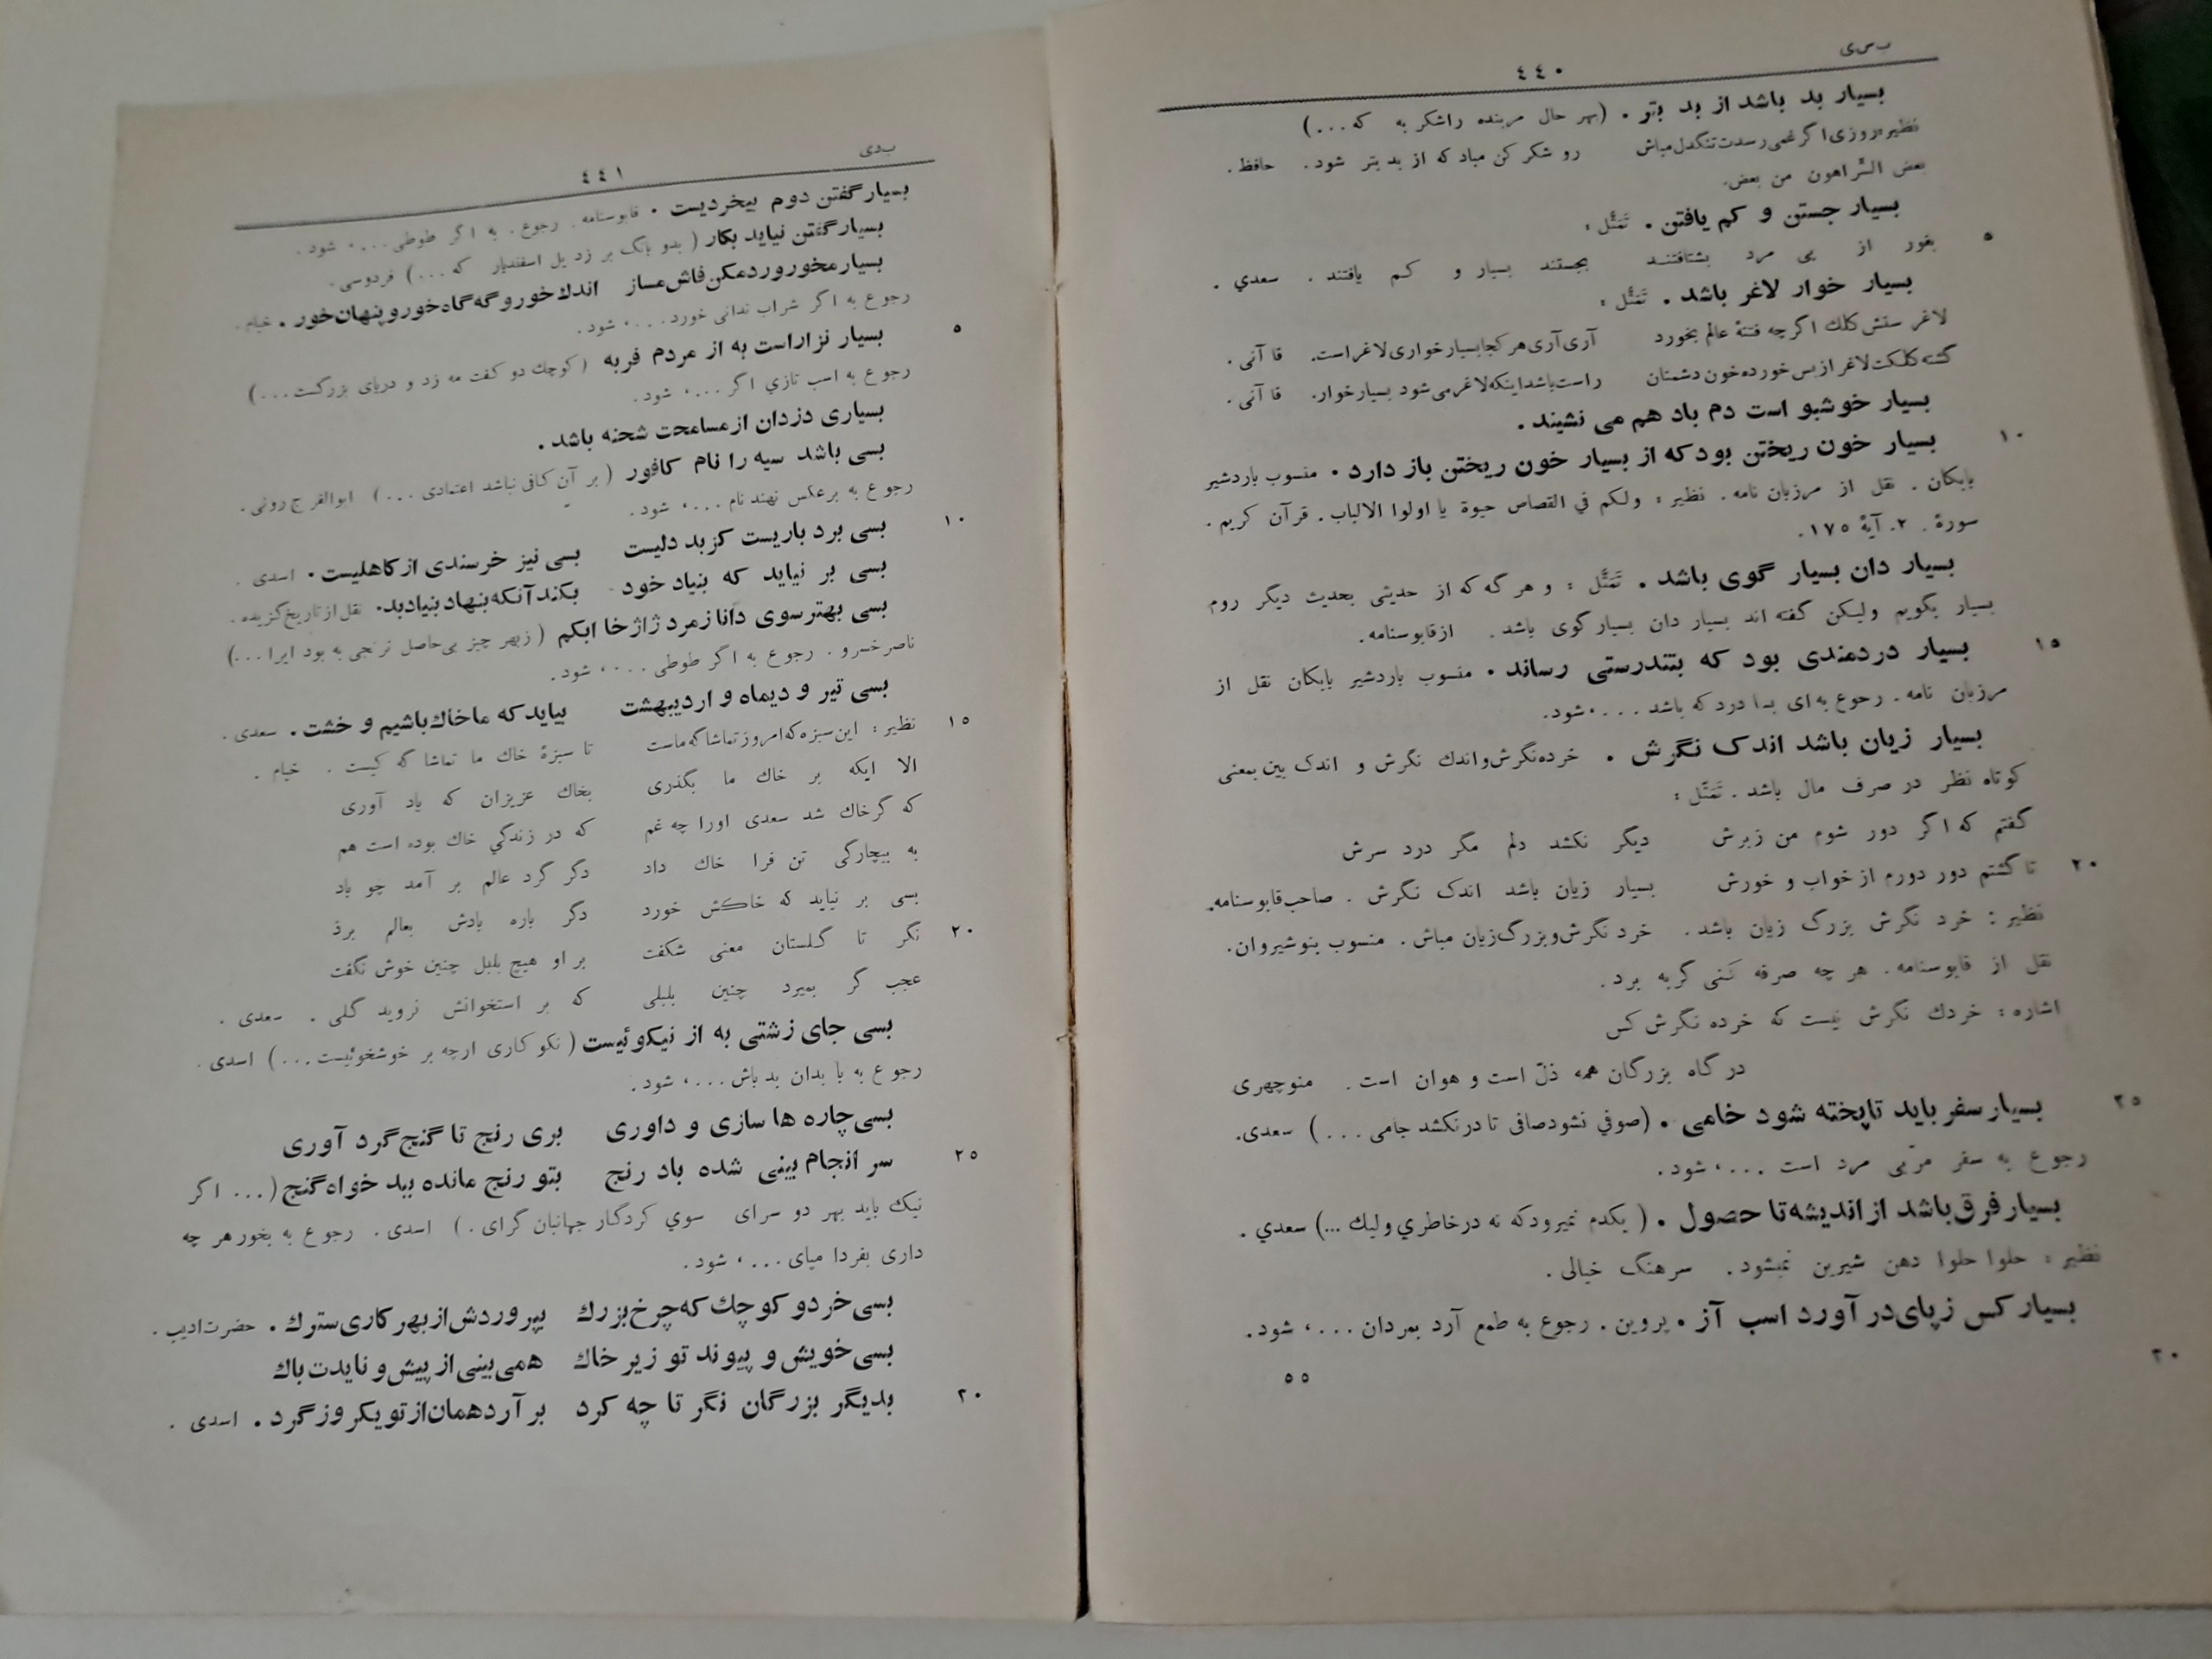 ب س ی
٤٤٠
بسیار بد باشد از بد بتر . (بهر حال مربنده راشکر به که...)
نظیر: روزی اگر غمی رسدت تنگدل مباش رو شکر کن مباد که از بد بتر شود. حافظ .
بعض الشّر اهون من بعض.
بسیار جستن و کم یافتن . تَمَثُّل :
٥
بغور از پی مرد بشتافتند بجستند بسیار و کم یافتند . سعدي .
بسیار خوار لاغر باشد . تَمَثُّل :
لاغر ستش کلك اگر چه فتنهٔ عالم بخورد آری آری هر کجا بسیار خواری لاغر است. قا آنی .
گشته کلکت لاغر از بس خورده خون دشمنان راست باشد اینکه لاغر می شود بسیار خوار. قا آنی .
بسیار خوشبو است دم باد هم می نشیند .
١٠
بسیار خون ریختن بود که از بسیار خون ریختن باز دارد . منسوب باردشیر
بابکان . نقل از مرزبان نامه . نظیر : ولکم في القصاص حیوة یا اولوا الالباب . قرآن کریم .
سورهٔ . ٢. آیهٔ ١٧٥.
بسیار دان بسیار گوی باشد . تَمَثُّل : و هر گه که از حدیثی بحدیث دیگر روم
بسیار بگویم ولیکن گفته اند بسیار دان بسیار گوی باشد . از قابوسنامه.
١٥
بسیار دردمندی بود که بتندرستی رساند . منسوب باردشیر بابکان نقل از
مرزبان نامه . رجوع به ای بسا درد که باشد ...، شود.
بسیار زیان باشد اندک نگرش . خرده نگرش و اندك نگرش و اندک بین بمعنی
کوتاه نظر در صرف مال باشد . تَمَثّل :
گفتم که اگر دور شوم من زبرش دیگر نکشد دلم مگر درد سرش
٢٠
تا گشتم دور دورم از خواب و خورش بسیار زیان باشد اندک نگرش . صاحب قابوسنامه.
نظیر : خرد نگرش بزرگ زیان باشد . خرد نگرش و بزرگ زیان مباش . منسوب بنوشیروان.
نقل از قابوسنامه . هر چه صرفه کنی گربه برد .
اشاره : خردك نگرش نیست که خرده نگرش کس
در گاه بزرگان همه ذلّ است و هوان است . منوچهری
٢٥
بسیار سفر باید تاپخته شود خامی . (صوفي نشود صافی تا در نکشد جامی ...) سعدی.
رجوع به سفر مربّی مرد است ...، شود.
بسیار فرق باشد از اندیشه تا حصول . ( یکدم نمیرود که نه در خاطري ولیك ...) سعدي .
نظیر : حلوا حلوا دهن شیرین نمیشود . سرهنگ خیالی .
بسیار کس زپای در آورد اسب آز . پروین . رجوع به طمع آرد بمردان ...، شود.
٣٠
٥٥
ب د ی
٤٤١
بسیار گفتن دوم بیخردیست . قابوسنامه . رجوع . به اگر طوطی ...، شود .
بسیار گفتن نیاید بکار ( بدو بانگ بر زد یل اسفندیار که ...) فردوسی .
بسیار مخور ورد مکن فاش مساز اندك خور و گه گاه خور و پنهان خور . خیام .
رجوع به اگر شراب ندانی خورد ...، شود .
٥
بسیار نزار است به از مردم فربه ( کوچك دو کفت مه زد و دریای بزرگت ...)
رجوع به اسب تازي اگر ...، شود.
بسیاری دزدان از مسامحت شحنه باشد .
بسی باشد سیه را نام کافور ( بر آن کافی نباشد اعتمادی ...) ابوالفرج رونی .
رجوع به برعکس نهند نام ...، شود.
١٠
بسی برد باریست کز بد دلیست بسی نیز خرسندی از کاهلیست . اسدی .
بسی بر نیاید که بنیاد خود بکند آنکه بنهاد بنیاد بد. نقل از تاریخ گزیده .
بسی بهتر سوی دانا ز مرد ژاژ خا ابکم ( زبهر چیز بی حاصل نرنجی به بود ایرا ...)
ناصر خسرو . رجوع به اگر طوطی ...، شود.
بسی تیر و دیماه و اردیبهشت بیاید که ما خاك باشیم و خشت . سعدی .
١٥
نظیر : این سبزه که امروز تماشا گه ماست تا سبزهٔ خاك ما تماشا گه کیست . خیام .
الا ایکه بر خاك ما بگذری بخاك عزیزان که یاد آوری
که گر خاك شد سعدی اورا چه غم که در زندگي خاك بوده است هم
به بیچارگی تن فرا خاك داد دگر گرد عالم بر آمد چو باد
بسی بر نیاید که خاکش خورد دگر باره بادش بعالم برد
٢٠
نگر تا گلستان معنی شکفت بر او هیچ بلبل چنین خوش نگفت
عجب گر بمیرد چنین بلبلی که بر استخوانش نروید گلی . سعدی .
بسی جای زشتی به از نیکوئیست ( نکو کاری ارچه بر خوشخوئیست ...) اسدی .
رجوع به با بدان بد باش ...، شود.
بسی چاره ها سازی و داوری بری رنج تا گنج گرد آوری
٢٥
سر انجام بینی شده باد رنج بتو رنج مانده ببد خواه گنج (... اگر
نیك باید بهر دو سرای سوي کردگار جهانبان گرای .) اسدی . رجوع به بخور هر چه
داری بفردا مپای ...، شود.
بسی خرد و کوچك که چرخ بزرك بپروردش از بهر کاری سترك . حضرت ادیب .
بسی خویش و پیوند تو زیر خاك همی بینی از پیش و نایدت باك
٣٠
بدیگر بزرگان نگر تا چه کرد بر آرد همان از تو یکروز گرد . اسدی .